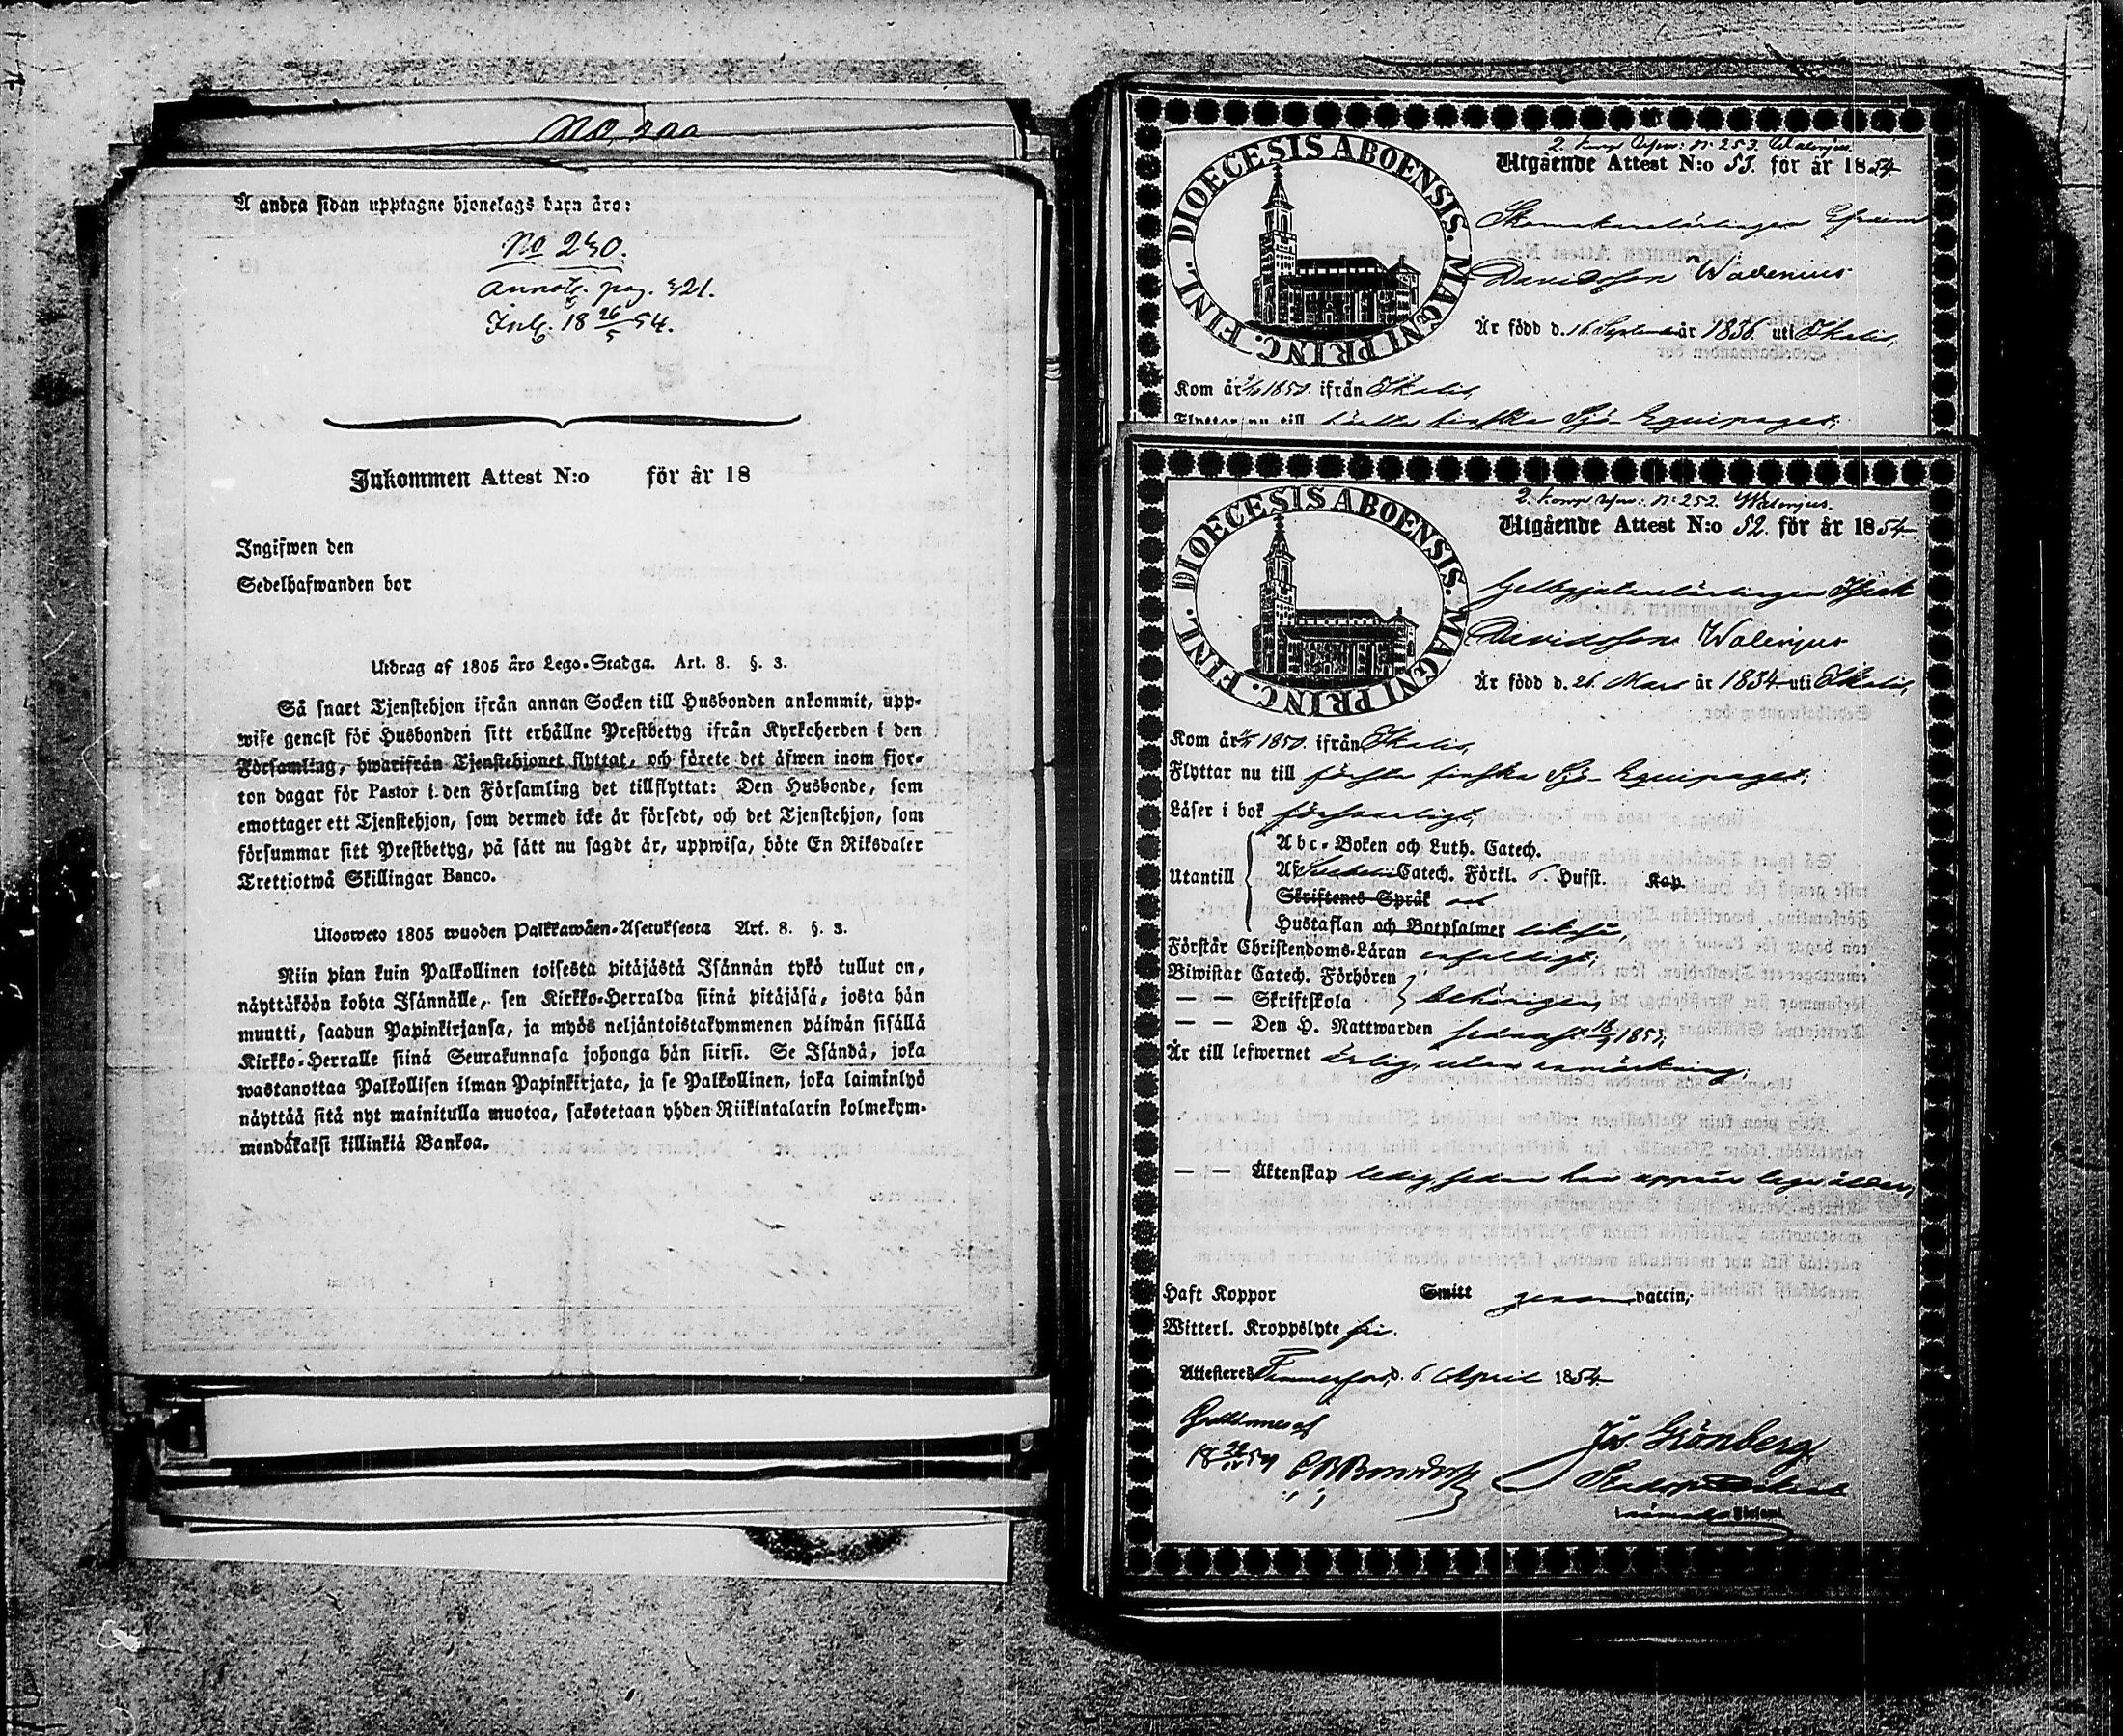 No 200
Å andra sidan upptagne hjonelags barn äro:
No 240.
annot. pag. 321.
Inl. 18 26/5 54.
Inkommen Attest N:o för år 18
Ingifwen den
Sedelhafwanden bor
Utdrag af 1805 års Lego-Stadga. Art. 8. §. 3.
Så snart Tjenstehjon ifrån annan Socken till Husbonden ankommit, upp-
wise genast för Husbonden sitt erhållne Prestbetyg ifrån Kyrkoherden i den
Församling, hwarifrån Tjenstehjonet flyttat, och förete det äfwen inom fjor-
ton dagar för Pastor i den Församling det tillflyttat: Den Husbonde, som
emottager ett Tjenstehjon, som dermed icke är försedt, och det Tjenstehjon, som
försummar sitt Prestbetyg, på sätt nu sagdt är, uppwisa, böte En Riksdaler
Trettiotwå Skillingar Banco.
Uloswето 1805 wuoden Palkkawäen-Asetuksesta Art. 8. §. 3.
Niin pian kuin Palkollinen toisesta pitäjästä Isännän tykö tullut on,
näyttäköön kohta Isännälle, sen Kirkko-Herralda siinä pitäjäsä, josta hän
muutti, saadun Papinkirjansa, ja myös neljäntoistakymmenen päiwän sisällä
Kirkko-Herralle siinä Seurakunnasa johonga hän siirsi. Se Isändä, joka
wastanottaa Palkollisen ilman Papinkirjata, ja se Palkollinen, joka laiminlyö
näyttää sitä nyt mainitulla muotoa, sakotetaan yhden Riikintalarin kolmekym-
mendäkaksi killinkiä Bankoa.
DIOECESIS ABOENSIS. MAGNI PRINC. FINL.
2. komp. N: 253. Walenius.
Utgående Attest N:o 53. för år 1854
Skomakarelärlingen Efraim
Davidsson Walenius
Är född d. 16 September år 1836 uti Ikalis,
Kom år 1850. ifrån Ikalis,
Flyttar nu till första finska Sjö-Equipaget;
DIOECESIS ABOENSIS. MAGNI PRINC. FINL.
2. komp. N: 252. Walenjus.
Utgående Attest N:o 52. för år 1854
Gelbgjutarelärlingen Isak
Davidsson Walenjus
Är född d. 26. Mars år 1834 uti Ikalis,
Kom år 1850. ifrån Ikalis,
Flyttar nu till första finska Sjö-Equipaget;
Läser i bok försvarligt,
Utantill
Abc-Boken och Luth. Catech.
Af Catech. Förkl. 6. Hufst. Kap.
Skriftenes Språk och
Hustaflan och Botpsalmer likaså,
Förstår Christendoms-Läran enfaldigt;
Biwistat Catech. Förhören
— — Skriftskola behörigen,
— — Den H. Nattwarden sednast 1853;
Är till lefwernet ärlig, utan anmärkning;
— — Äktenskap ledig, sedan han uppnår laga ålder,
Haft Koppor Smitt genom vaccin;
Witterl. Kroppslyte fri.
Attesteras Tammerfors, d. 6. April 1854.
18 54
Jos. Grönberg